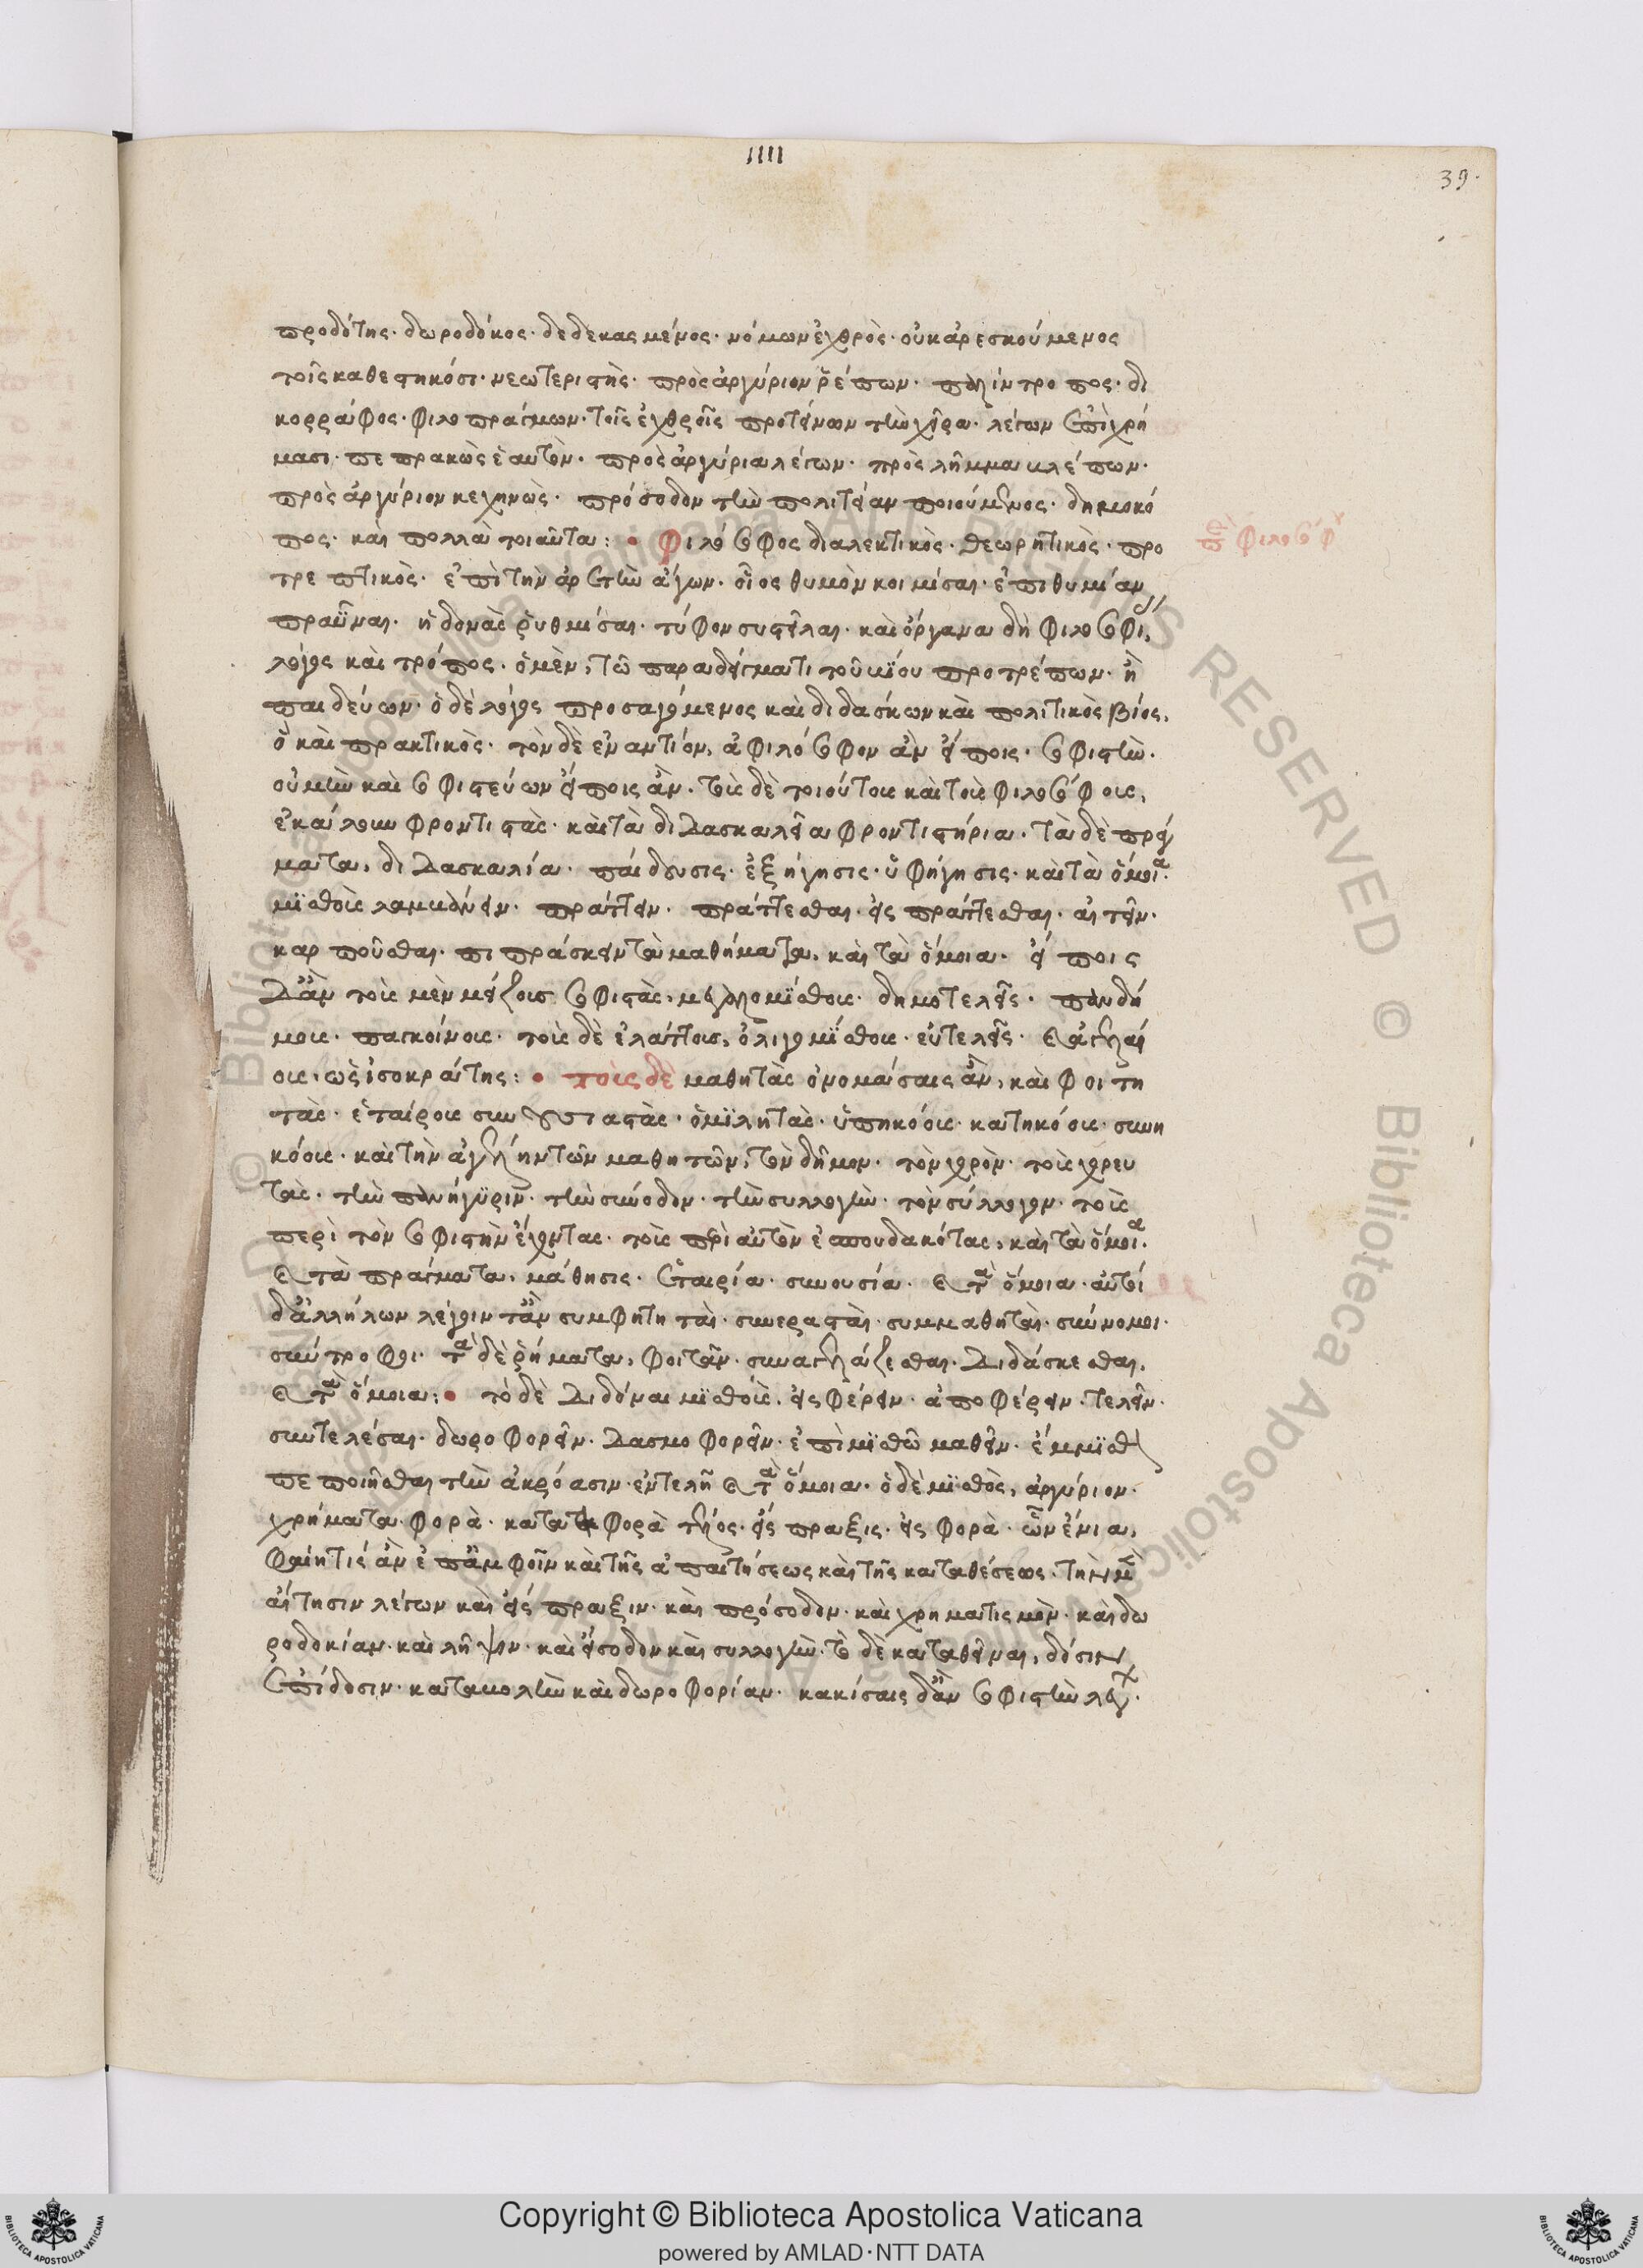 IIII
39.
προδότης· δωροδόκος· δεδεκασμένος· νόμων ἐχθρὸς· οὐκ ἀρεσκούμενος
τοῖς καθεστηκόσι· νεωτεριστὴς· πρὸς ἀργύριον ῥέπων· παλίντροπος· δι
κορράφος· φιλοπράγμων· τοῖς ἐχθροῖς προτείνων τὴν χεῖρα· λέγων ἐπὶ χρή
μασι· πεπρακὼς ἑαυτὸν· πρὸς ἀργύρια λέγων· πρὸς λῆμμα βλέπων·
πρὸς ἀργύριον κεχηνὼς· πρόσοδον τὴν πολιτείαν ποιούμενος· δημοκό
πος· καὶ πολλὰ τοιαῦτα: • Φιλόσοφος διαλεκτικὸς· θεωρητικὸς· προ
π̅ρ̅ φιλοσόφου
τρεπτικὸς· ἐπὶ τὴν ἀρετὴν ἄγων· οἷος θυμὸν κοιμίσαι· ἐπιθυμίαν
πραῧναι· ἡδονὰς ῥυθμίσαι· τύφον συστεῖλαι· καὶ ὄργανα δὴ φιλοσοφίας,
λόγος καὶ τρόπος· ὁ μὲν, τῶ παραδείγματι τοῦ βίου προτρέπων· ἢ
παιδεύων· ὁ δὲ λόγος προσαγόμενος καὶ διδάσκων καὶ πολιτικὸς βίος,
ὁ καὶ πρακτικὸς· τὸν δὲ ἐναντίον, ἀφιλόσοφον ἂν εἴποις· σοφιστὴν·
οὐ μὴν καὶ σοφιστεύων εἴποις ἂν· τοὺς δὲ τοιούτους καὶ τοὺς φιλοσόφους,
ἐκάλουν φροντιστὰς· καὶ τὰ διδασκαλεῖα φροντιστήρια· τὰ δὲ πράγ
ματα, διδασκαλία· παίδευσις· ἐξήγησις· ὑφήγησις· καὶ τὰ ὅμοια·
μϊσθοὺς λαμβάνειν· πράττειν· πράττεσθαι· εἰσπράττεσθαι· αἰτεῖν·
καρποῦσθαι· πιπράσκειν τὰ μαθήματα, καὶ τὰ ὅμοια· εἴποις
δ' ἂν τοὺς μὲν μείζους σοφιστὰς, μεγαλομίσθους· δημοτελεῖς· πανδή
μους· παγκοίνους· τοὺς δὲ ἐλάττους, ὀλιγομίσθους· εὐτελεῖς· καὶ ἀγελαί
ους, ὡς ἰσοκράτης: • τοὺς δὲ μαθητὰς ὀνομάσαις ἂν, καὶ φοιτη
τὰς· ἑταίρους συνουσιαστὰς· ὁμϊλητὰς· ὑπηκόους· κατηκόους· συνη
κόους· καὶ τὴν ἀγέλην τῶν μαθητῶν, τὸν δῆμον· τὸν χορὸν· τοὺς χορευ
τὰς· τὴν πανήγυριν· τὴν σύνοδον· τὴν συλλογὴν· τὸν σύλλογον· τοὺς
περὶ τὸν σοφιστὴν ἔχοντας· τοὺς περὶ αὐτὸν ἐσπουδακότας, καὶ τὰ ὅμοια·
καὶ τὰ πράγματα, μάθησις· ἑταιρία· συνουσία· καὶ τὰ ὅμοια· αὐτοὶ
δ' ἀλλήλων λέγοιντ' ἂν συμφοιτηταὶ· συνερασταὶ· συμμαθηταὶ· σύννομοι·
σύντροφοι· τὰ δὲ ῥήματα, φοιτᾶν· συναγελάζεσθαι· διδάσκεσθαι,
καὶ τὰ ὅμοια: • τὸ δὲ διδόναι μϊσθοὺς, εἰσφέρειν· ἀποφέρειν· τελεῖν·
συντελέσαι· δωροφορεῖν· δασμοφορεῖν· ἐπὶ μϊσθῶ μαθεῖν· ἔμμϊσθον
πεποιῆσθαι τὴν ἀκρόασιν· ἐντελῆ καὶ τὰ ὅμοια· ὁ δὲ μϊσθὸς, ἀργύριον·
χρήματα· φορὰ· καταφορὰ τέλος· εἴσπραξις· εἰσφορὰ· ὧν ἔνια,
φαίη τις ἂν ἐπ' ἀμφοῖν καὶ τῆς ἀπαιτήσεως καὶ τῆς καταθέσεως· τὴν μὲν
αἴτησιν λέγων καὶ εἴσπραξιν· καὶ πρόσοδον· καὶ χρηματισμὸν· καὶ δω
ροδοκίαν· καὶ λῆψιν· καὶ εἴσοδον καὶ συλλογὴν· τὸ δὲ καταθεῖναι, δόσιν,
ἐπίδοσιν· καταβολὴν καὶ δωροφορίαν· κακίσαις δ' ἂν σοφιστὴν λέγων·